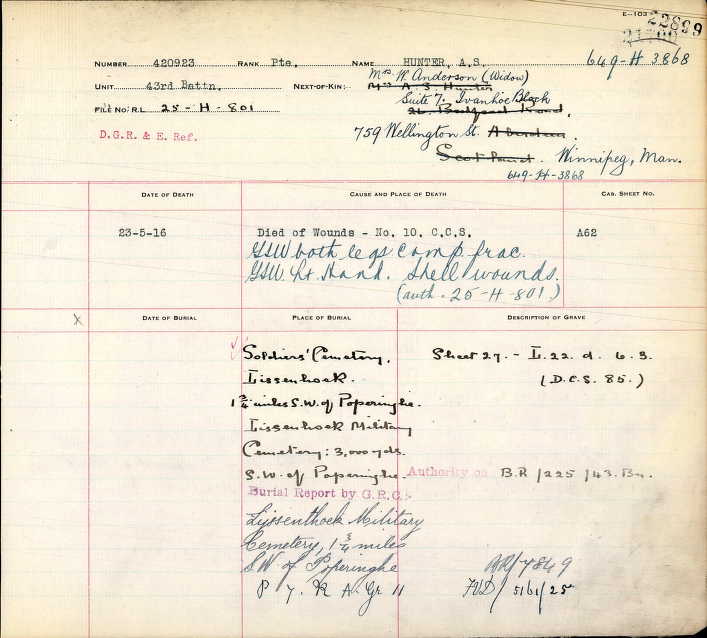 E-103
22899
649-H 3868
NUMBER 420923 RANK Pte. NAME HUNTER, A.S.
Mrs W. Anderson (Widow)
UNIT 43rd Battn. NEXT-OF-KIN: Mrs A. S. Hunter
Suite 7. Ivanhoe Block
FILE NO: R.L. 25-H-801 Bedford Road,
D.G.R. & E. Ref. 759 Wellington St. Aberdeen.
Scotland. Winnipeg, Man.
649-H-3868
DATE OF DEATH CAUSE AND PLACE OF DEATH CAS. SHEET NO.
23-5-16 Died of Wounds - No. 10. C.C.S. A62
GSW both legs comp frac.
GSW Lt Hand. Shell wounds.
(auth. 25-H-801.)
X DATE OF BURIAL PLACE OF BURIAL DESCRIPTION OF GRAVE
Soldiers' Cemetery, Sheet 27. - L. 22. d. 6. 3.
Lissenhoek. (D.C.S. 85.)
1 3/4 miles S.W. of Poperinghe.
Lissenhoek Military
Cemetery: 3,000 yds.
S.W. of Poperinghe. Authority on B.R/225/43.Bn.
Burial Report by G.R.C:-
Lijssenthoek Military
Cemetery, 1 3/4 miles
S.W. of Poperinghe 7849
P 7. R A. Gr 11 5161/25